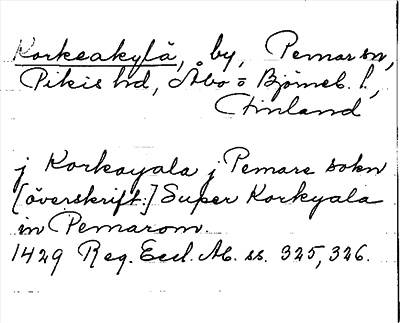 Korkeakylä, by, Pemar sn,
Pikis hd, Åbo = Björneb. l.,
Finland
j Korkoyala j Pemare sokn
[överskrift:] Super Korkyala
in Pemarom.
1429 Reg. Eccl. Ab. ss. 325, 326.